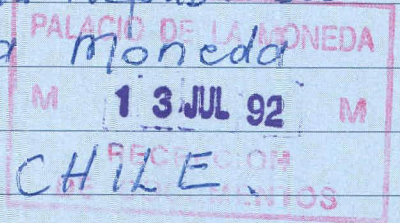 PALACIO DE LA MONEDA
a Moneda
M 13 JUL 92 M
RECEPCION
CHILE.
DE DOCUMENTOS